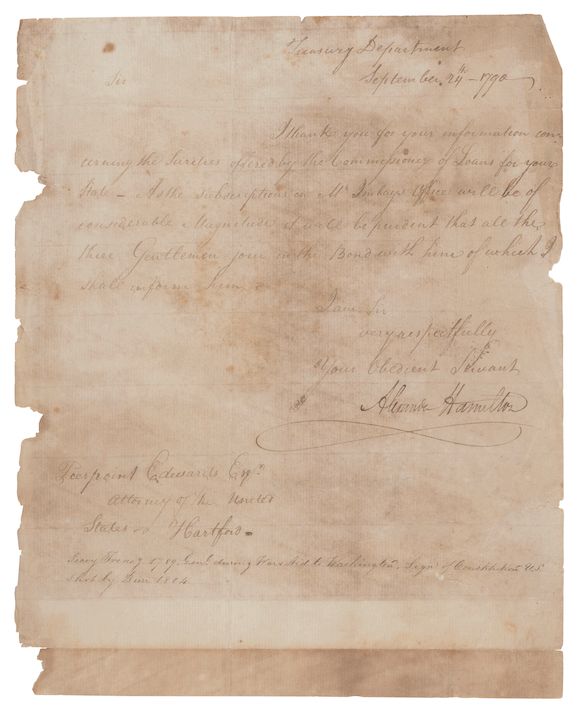 Treasury Department
September 24th – 1790
Sir
I thank you for your information con-
cerning the Sureties offered by the Commissioner of Loans for your
State – As the subscriptions in Mr Office will be of
considerable Magnitude it will be prudent that all the
three Gentlemen join in the Bond with him of which I
shall inform him
I am Sir
very respectfully
Your Obedient Servant
Alexander Hamilton
Pierpoint Edwards Esqr.
Attorney of the United
States – Hartford –
Secy Treasy 1789. Genl. during War. Aid to Washington. Signr of Constitution U.S.
Shot by Burr 1804